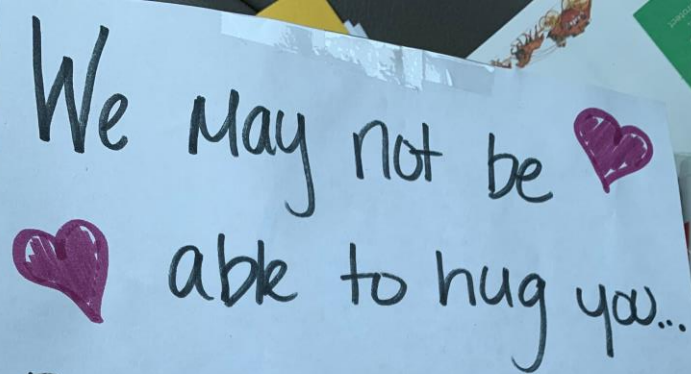 We May not be
able to hug you...